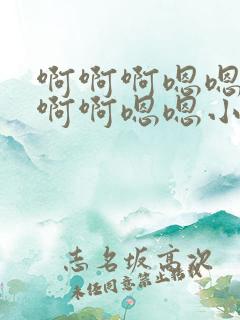 啊啊啊嗯嗯
啊啊嗯嗯小
志名坂高次
未经同意禁止转载